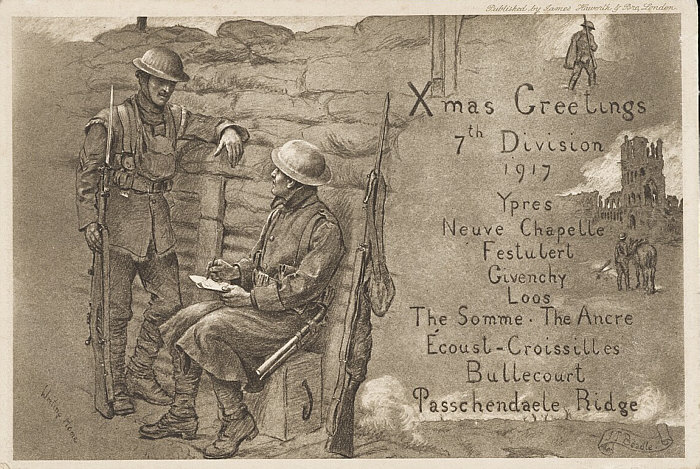 Published by James Haworth & Bro, London
Xmas Greetings
7th Division
1917
Ypres
Neuve Chapelle
Festubert
Givenchy
Loos
The Somme · The Ancre
Écoust-Croissilles
Bullecourt
Passchendaele Ridge
Writing Home